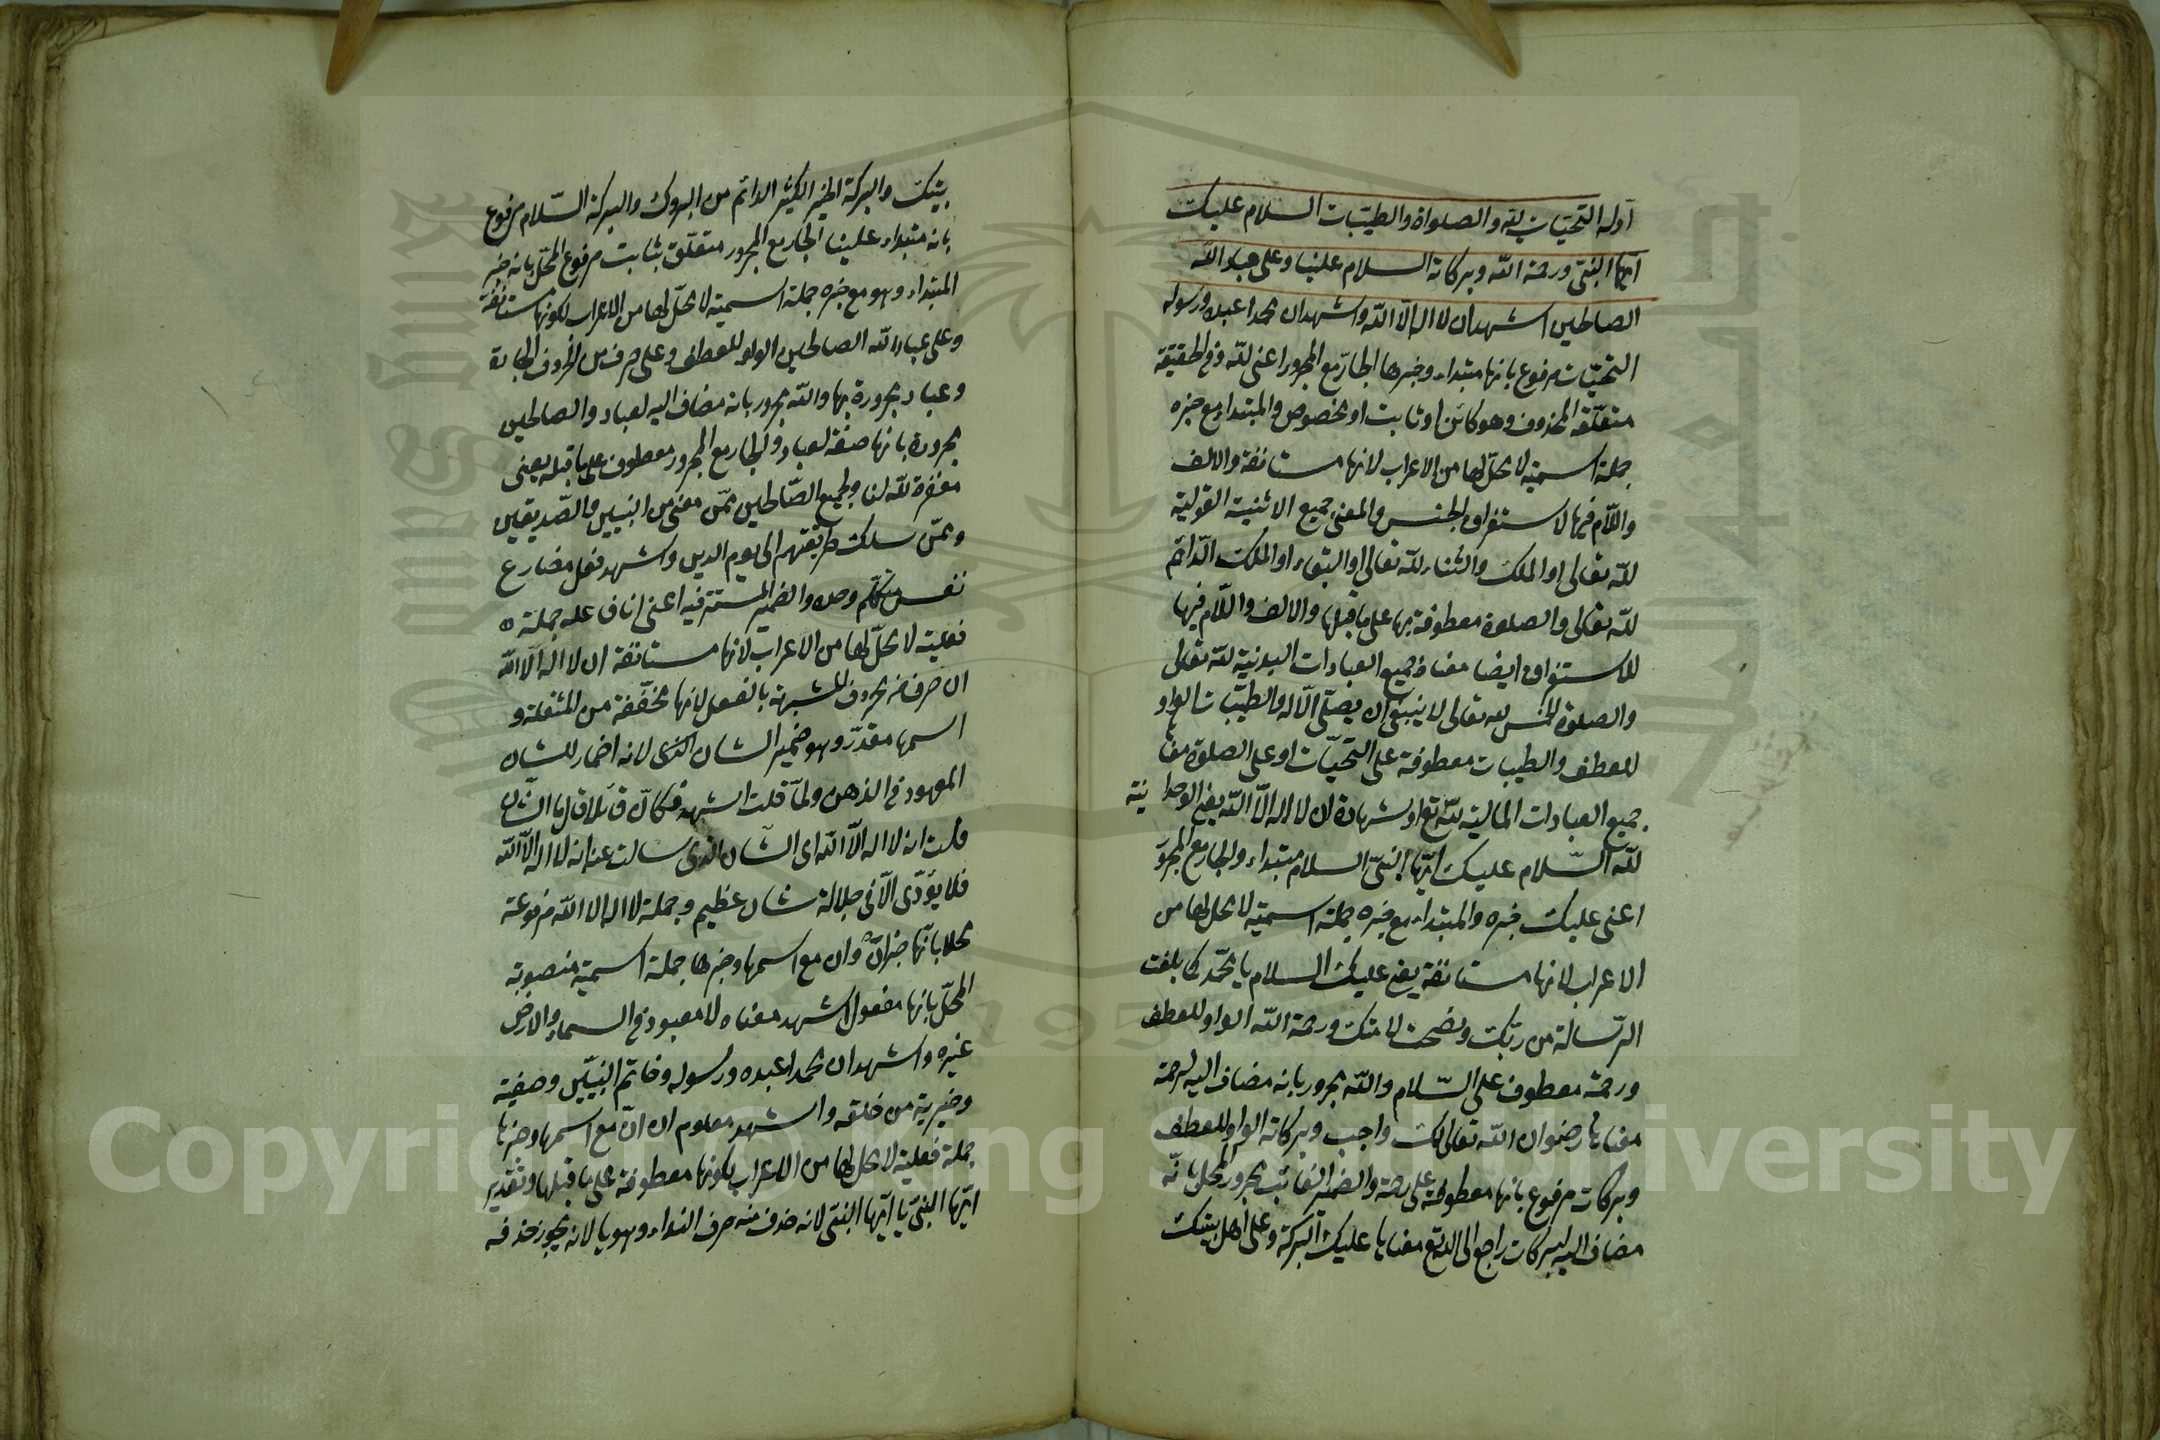 اوله التحيات لله والصلواة والطيبات السلام عليك
ايها النبى ورحمة الله وبركاته السلام علينا وعلى عباد الله
الصالحين اشهد ان لا اله الا الله واشهد ان محمدا عبده ورسوله
التحيات مرفوع بانها مبتداء وخبرها الجار مع المجرور اعنى لله وفى الحقيقة
متعلقه المحذوف وهو كائن او ثابت او مخصوص والمبتداء مع خبره
جملة اسمية لا محل لها من الاعراب لانها مستانفة والالف
واللام فيها لاستغراق الجنس والمعنى جميع الاثنية القولية
لله تعالى او الملك والثناء لله تعالى او البقاء او الملك الدائم
لله تعالى والصلوة معطوفة بها على ما قبلها والالف واللام فيها
للاستغراق ايضا معناه جميع العبادات البدنية لله تعالى
والصلوة لله تعالى لا ينبغى ان يصلى الا له والطيبات الواو
للعطف والطيبات معطوفة على التحيات او على الصلوة معنا
جميع العبادات المالية لله تع او شهادة ان لا اله الا الله يعنى الوحدا نية
لله السلام عليك ايها النبى السلام مبتداء والجار مع المجرور
اعنى عليك خبره والمبتداء مع خبره جملة اسمية لا محل لها من
الاعراب لانها مستانفة يعنى عليك السلام يا محمد كما بلغت
الرسالة من ربك ونصحت لامتك ورحمة الله الواو للعطف
ورحمة معطوف على السلام والله مجرور بانه مضاف اليه لرحمة
معناها رضوان الله تعالى لك واجب وبركاته الواو للعطف
وبركات مرفوع بانها معطوفة على رحمة والضمير الغائب مجرور المحل بانه
مضاف اليه لبركات راجع الى الله تع معناها عليك البركة وعلى اهل بيتك
بيتك والبركة الخير الكثير الدائم من البروك والبركة السلام مرفوع
بانه مبتداء علينا الجار مع المجرور متعلق بثابت مرفوع المحل بانه خبر
المبتداء وهو مع خبره جملة اسمية لا محل لها من الاعراب لكونها مستانفة
وعلى عباد الله الصالحين الواو للعطف وعلى حرف من الحروف الجارة
وعباد مجرورة بها والله مجرور بانه مضاف اليه لعباد والصالحين
مجرورة بانها صفة لعباد والجار مع المجرور معطوف على ما قبله يعنى
مغفرة لله لنا ولجميع الصالحين ممن مضى من النبيين والصديقين
وممن سلك طريقتهم الى يوم الدين واشهد فعل مضارع
نفس متكلم وحده والضمير المستتر فيه اعنى انا فاعله جملة
فعلية لا محل لها من الاعراب لانها مستانفة ان لا اله الا الله
ان حرف من حروف المشبهة بالفعل لانها مخففة من المثقلة و
اسمها مقدر وهو ضمير الشان الذى لانه اضمار للشان
المعهود فى الذهن ولما قلت اشهد فكان قائلا قال ما الشان
قلت انه لا اله الا الله اى الشان الذى سالت عنه انه لا اله الا الله
فلا يؤدى الا فى جلالة شان عظيم وجملة لا اله الا الله مرفوعة
محلا بانها خبر ان وان مع اسمها وخبرها جملة اسمية منصوبة
المحل بانها مفعول اشهد معناه لا معبود فى السماء والارض
غيره واشهد ان محمدا عبده ورسوله وخاتم النبيين وصفيه
وخيرته من خلقه واشهد معلوم ان ان مع اسمها وخبرها
جملة فعلية لا محل لها من الاعراب لكونها معطوفة على ما قبلها وتقدير
ايها النبى يا ايها النبى لانه حذف منه حرف النداء وهو يا لانه يجوز حذفه
Copyright © King Saud University
King Saud University
1957